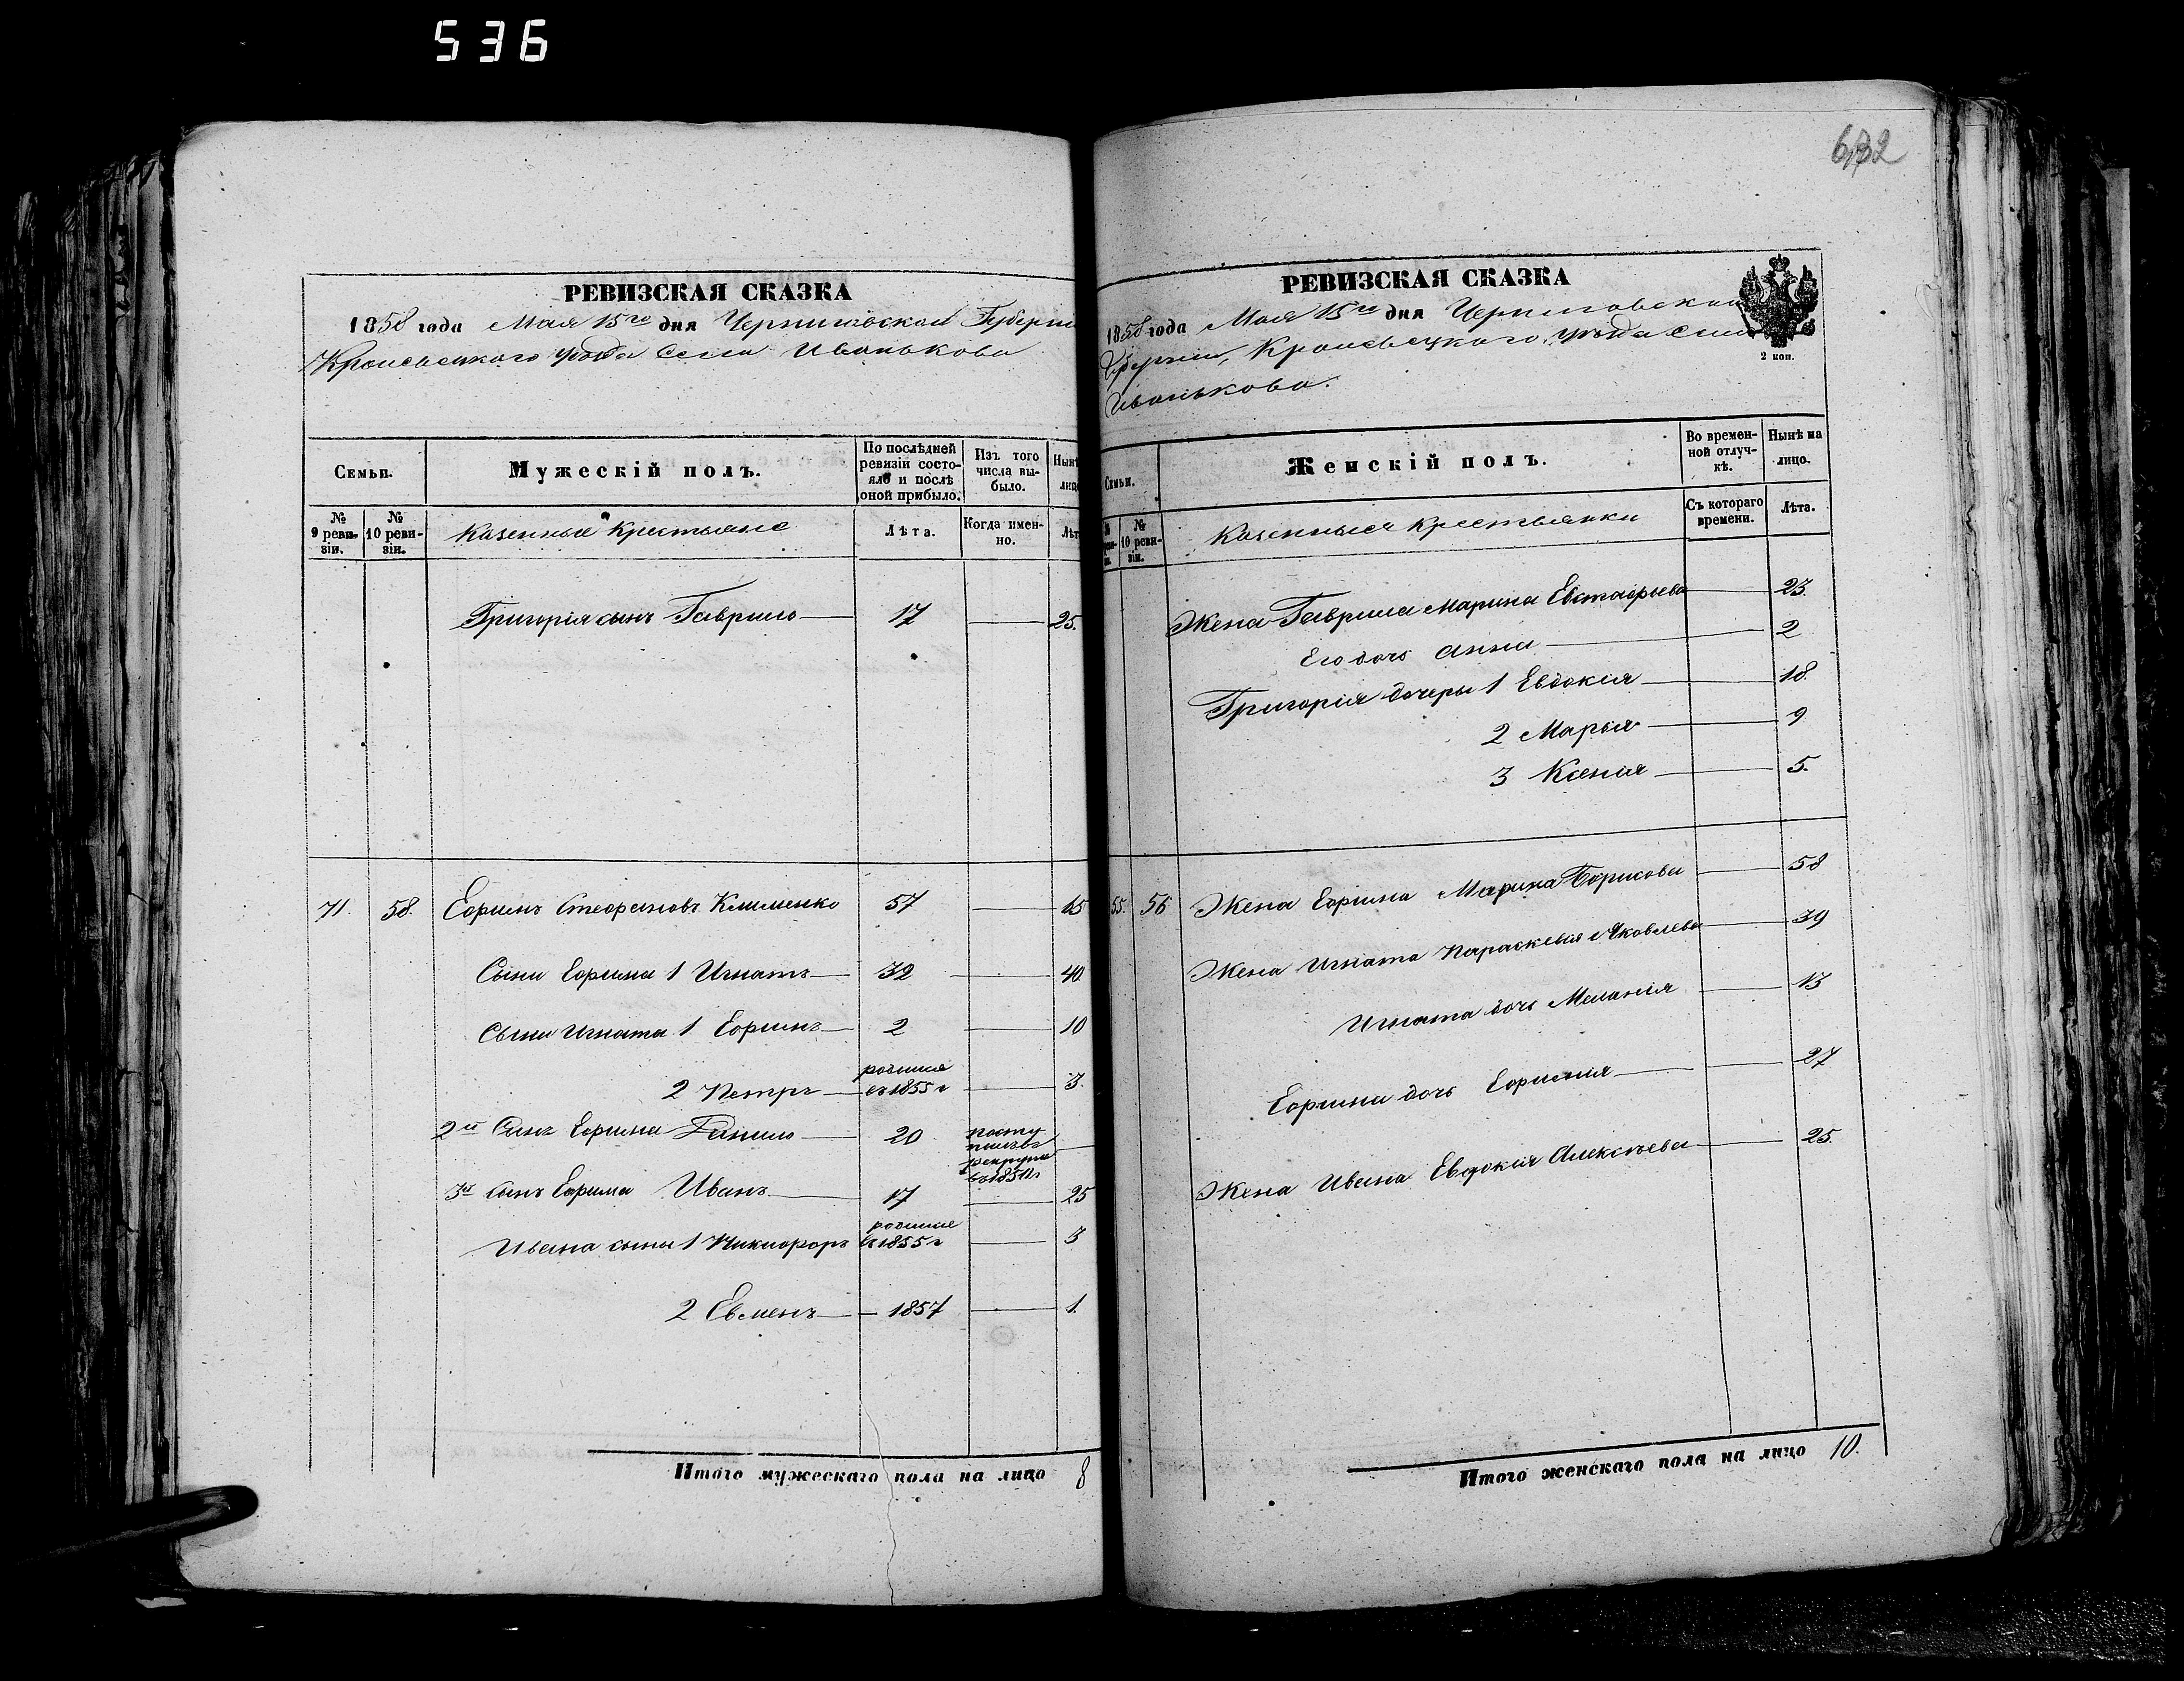 536
РЕВИЗСКАЯ СКАЗКА
1858 года Мая 15го дня Черниговской Губерни
Кролевецкого уѣзда Села Иванькова
Семьи.
Мужескій полъ.
По послѣдней ревизіи состояло и послѣ оной прибыло.
Изъ того числа выбыло.
Нынѣ лицо
№ 9 ревизіи.
№ 10 ревизіи.
Казенные Крестьяне
Лѣта.
Когда именно.
Лѣт
Григорія сынъ Гаврило 17 25.
71. 58. Ефимъ Стефановъ Клименко 57
Сыни Ефима 1 Игнатъ 32 40
Сыни Игната 1 Ефимъ 2 10
2 Петръ родился въ 1855 г 3.
2й Сынъ Ефима Данило 20 посту
рекруты
3й Сынъ Ефима Иванъ 17 25
Ивана сыни 1 Никифоръ родился въ 1855 г 3
2 Евменъ 1857 1.
Итого мужескаго пола на лицо 8
632
РЕВИЗСКАЯ СКАЗКА
1858 года Мая 15го дня Черниговской
Губерніи, Кролевецкого, уѣзда Села
Иванькова.
2 коп.
Семьи.
Женскій полъ.
Во временной отлучкѣ.
Нынѣ на лицо.
№ 10 ревизіи.
Казенныя крестьянки
Съ котораго времени.
Лѣта.
Жена Гаврила Марина Евстафьева 23.
Его дочь Анна 2
Григорія дочеры 1 Евдокія 18
2 Марья 9
3 Ксенія 5.
55. 56 Жена Ефима Марина Борисова 58
Жена Игната Параскевія Яковлева 39
Игната дочь Меланія 13
Ефима дочь Ефимія 27
Жена Ивана Евдокія Алексѣева 25.
Итого женскаго пола на лицо 10.